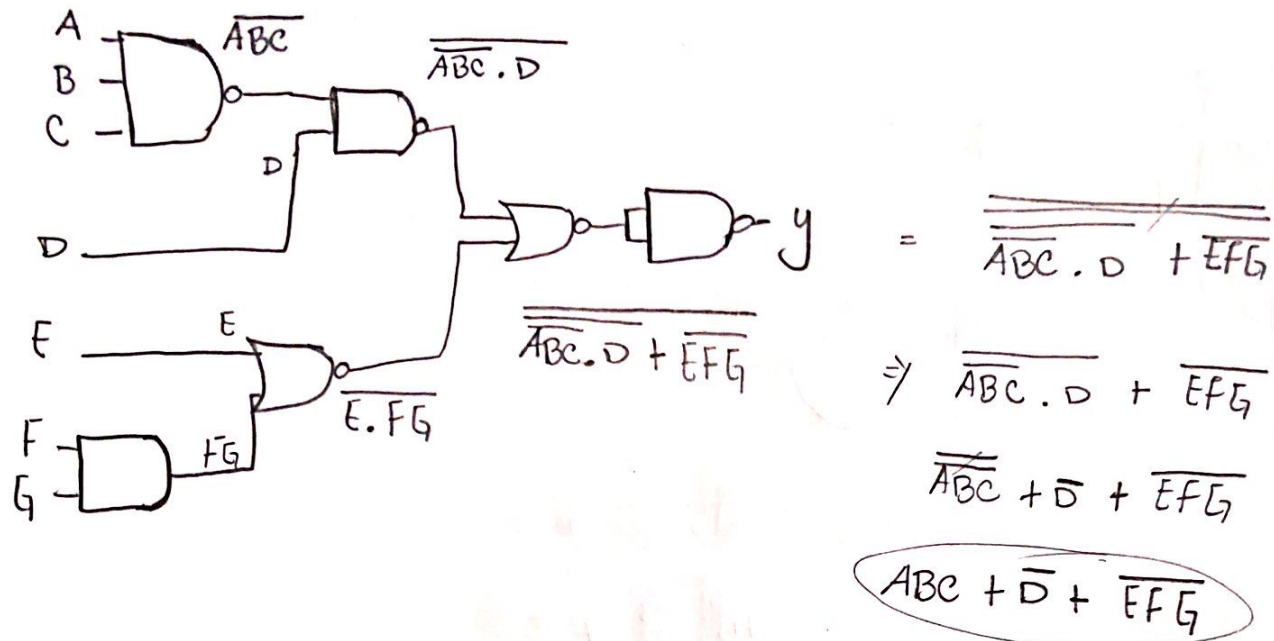 A
B
C
D
E
F
G
$\overline{ABC}$
D
$\overline{\overline{ABC} . D}$
E
FG
$\overline{E.FG}$
$\overline{\overline{\overline{ABC}.D} + \overline{EFG}}$
y
= $\overline{\overline{\overline{\overline{ABC} . D} + \overline{EFG}}}$
⇒ $\overline{\overline{ABC} . D} + \overline{EFG}$
$\overline{\overline{ABC}} + \overline{D} + \overline{EFG}$
ABC + $\overline{D}$ + $\overline{EFG}$